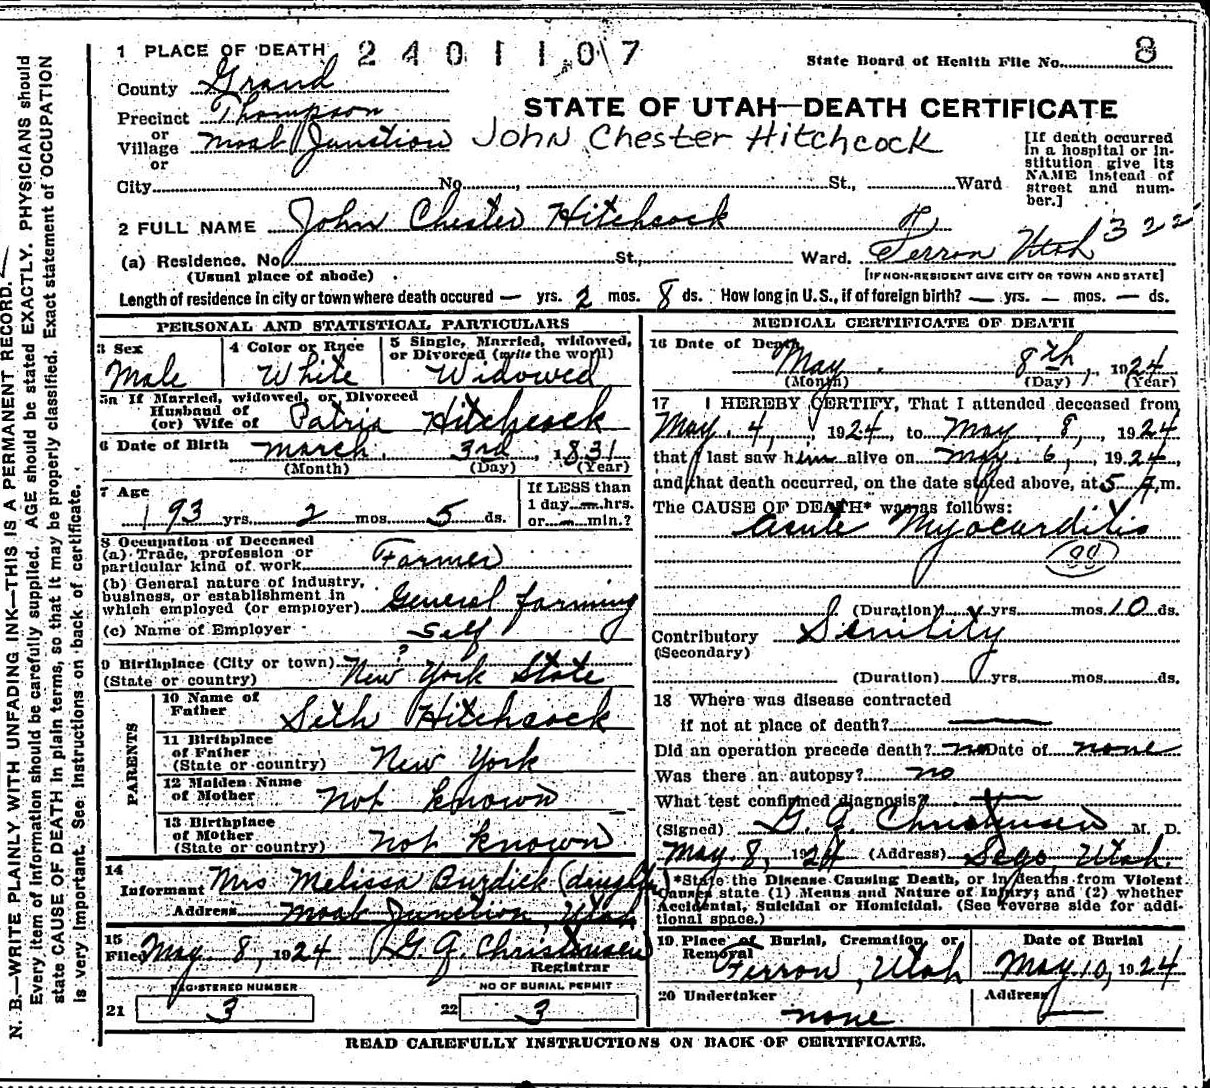 1 PLACE OF DEATH 2401107
State Board of Health File No. 8
County Grand
STATE OF UTAH—DEATH CERTIFICATE
Precinct Thompson
or
Village Moab Junction John Chester Hitchcock
or
City No. St., Ward
[If death occurred in a hospital or institution give its NAME instead of street and number.]
2 FULL NAME John Chester Hitchcock
(a) Residence. No. St., Ward. Ferron Utah 322
(Usual place of abode) [IF NON-RESIDENT GIVE CITY OR TOWN AND STATE]
Length of residence in city or town where death occured — yrs. 2 mos. 8 ds. How long in U.S., if of foreign birth? — yrs. — mos. — ds.
PERSONAL AND STATISTICAL PARTICULARS
3 Sex
Male
4 Color or Race
White
5 Single, Married, widowed,
or Divorced (write the word)
Widowed
5a If Married, widowed, or Divorced
Husband of
(or) Wife of Patria Hitchcock
6 Date of Birth March 3rd, 1831
(Month) (Day) (Year)
7 Age
93 yrs. 2 mos. 5 ds.
If LESS than
1 day — hrs.
or — min.?
8 Occupation of Deceased
(a) Trade, profession or
particular kind of work Farmer
(b) General nature of industry,
business, or establishment in
which employed (or employer) General farming
(c) Name of Employer Self
9 Birthplace (City or town) ?
(State or country) New York State
PARENTS
10 Name of
Father Seth Hitchcock
11 Birthplace
of Father
(State or country) New York
12 Maiden Name
of Mother Not known
13 Birthplace
of Mother
(State or country) Not known
14
Informant Mrs Melissa Burdick (daughter)
Address Moab Junction, Utah
15
Filed May 8, 1924 G. G. Christensen
Registrar
REGISTERED NUMBER
21 3
NO OF BURIAL PERMIT
22 3
MEDICAL CERTIFICATE OF DEATH
16 Date of Death
May 8th, 1924
(Month) (Day) (Year)
17 I HEREBY CERTIFY, That I attended deceased from
May 4, 1924 to May 8, 1924
that I last saw him alive on May 6, 1924,
and that death occurred, on the date stated above, at 5 A.m.
The CAUSE OF DEATH* was as follows:
Acute Myocarditis
(Duration) yrs. mos. 10 ds.
Contributory Senility
(Secondary)
(Duration) yrs. mos. ds.
18 Where was disease contracted
if not at place of death? —
Did an operation precede death? no Date of none
Was there an autopsy? no
What test confirmed diagnosis? —
(Signed) G. G. Christensen M. D.
May 8, 1924 (Address) Sego, Utah.
*State the Disease Causing Death, or in deaths from Violent
Causes state (1) Means and Nature of Injury; and (2) whether
Accidental, Suicidal or Homicidal. (See reverse side for addi-
tional space.)
19 Place of Burial, Cremation, or
Removal
Ferron, Utah
Date of Burial
May 10, 1924
20 Undertaker
none
Address
—
READ CAREFULLY INSTRUCTIONS ON BACK OF CERTIFICATE.
N. B.—WRITE PLAINLY WITH UNFADING INK—THIS IS A PERMANENT RECORD.
Every item of information should be carefully supplied. AGE should be stated EXACTLY. PHYSICIANS should
state CAUSE OF DEATH in plain terms, so that it may be properly classified. Exact statement of OCCUPATION
is very important. See instructions on back of certificate.